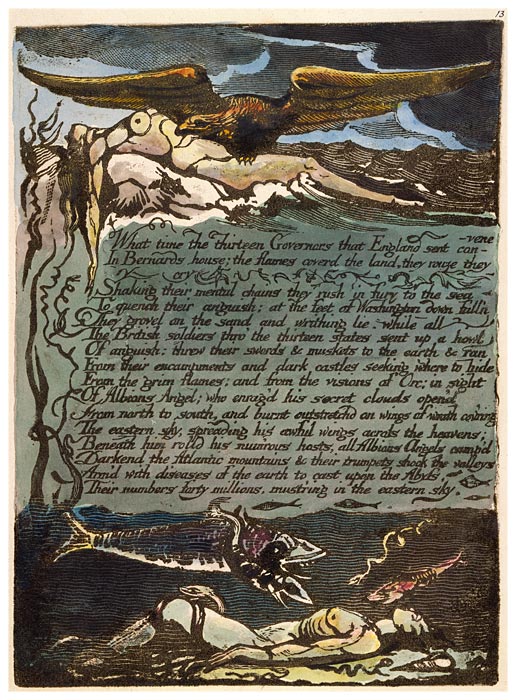 13
What time the thirteen Governors that England sent con-
-vene
In Bernards house; the flames coverd the land, they rouze they
cry
Shaking their mental chains they rush in fury to the sea
To quench their anguish; at the feet of Washington down fall'n
They grovel on the sand and writhing lie. while all
The British soldiers thro' the thirteen states sent up a howl
Of anguish: threw their swords & muskets to the earth & ran
From their encampments and dark castles seeking where to hide
From the grim flames; and from the visions of Orc; in sight
Of Albions Angel; who enrag'd his secret clouds open'd
From north to south, and burnt outstretchd on wings of wrath cov'ring
The eastern sky, spreading his awful wings across the heavens;
Beneath him rolld his num'rous hosts, all Albions Angels camp'd
Darkend the Atlantic mountains & their trumpets shook the valleys
Arm'd with diseases of the earth to cast upon the Abyss,
Their numbers forty millions, must'ring in the eastern sky.